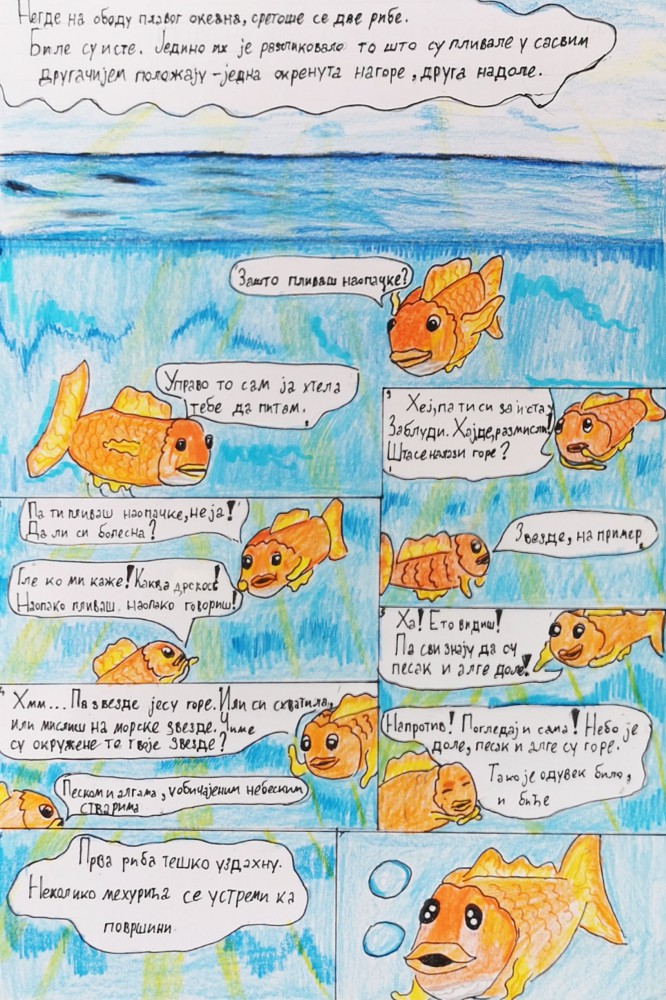 Негде на ободу плавог океана, сретоше се две рибе.
Биле су исте. Једино их је разликовало то што су пливале у сасвим
другачијем положају - једна окренута нагоре, друга надоле.
Зашто пливаш наопачке?
Управо то сам ја хтела
тебе да питам.
Па ти пливаш наопачке, не ја!
Да ли си болесна?
Гле ко ми каже! Каква дрскост!
Наопако пливаш, наопако говориш!
Хеј, па ти си заиста у
заблуди. Хајде, размисли!
Шта се налази горе?
Звезде, на пример
Хмм... Па звезде јесу горе. Или си схватила,
или мислиш на морске звезде. Чиме
су окружене те твоје звезде?
Песком и алгама, уобичајеним небеским
стварима
Ха! Ето видиш!
Па сви знају да су
песак и алге доле!
Напротив! Погледај и сама! Небо је
доле, песак и алге су горе.
Тако је одувек било,
и биће
Прва риба тешко уздахну.
Неколико мехурића се устреми ка
површини.